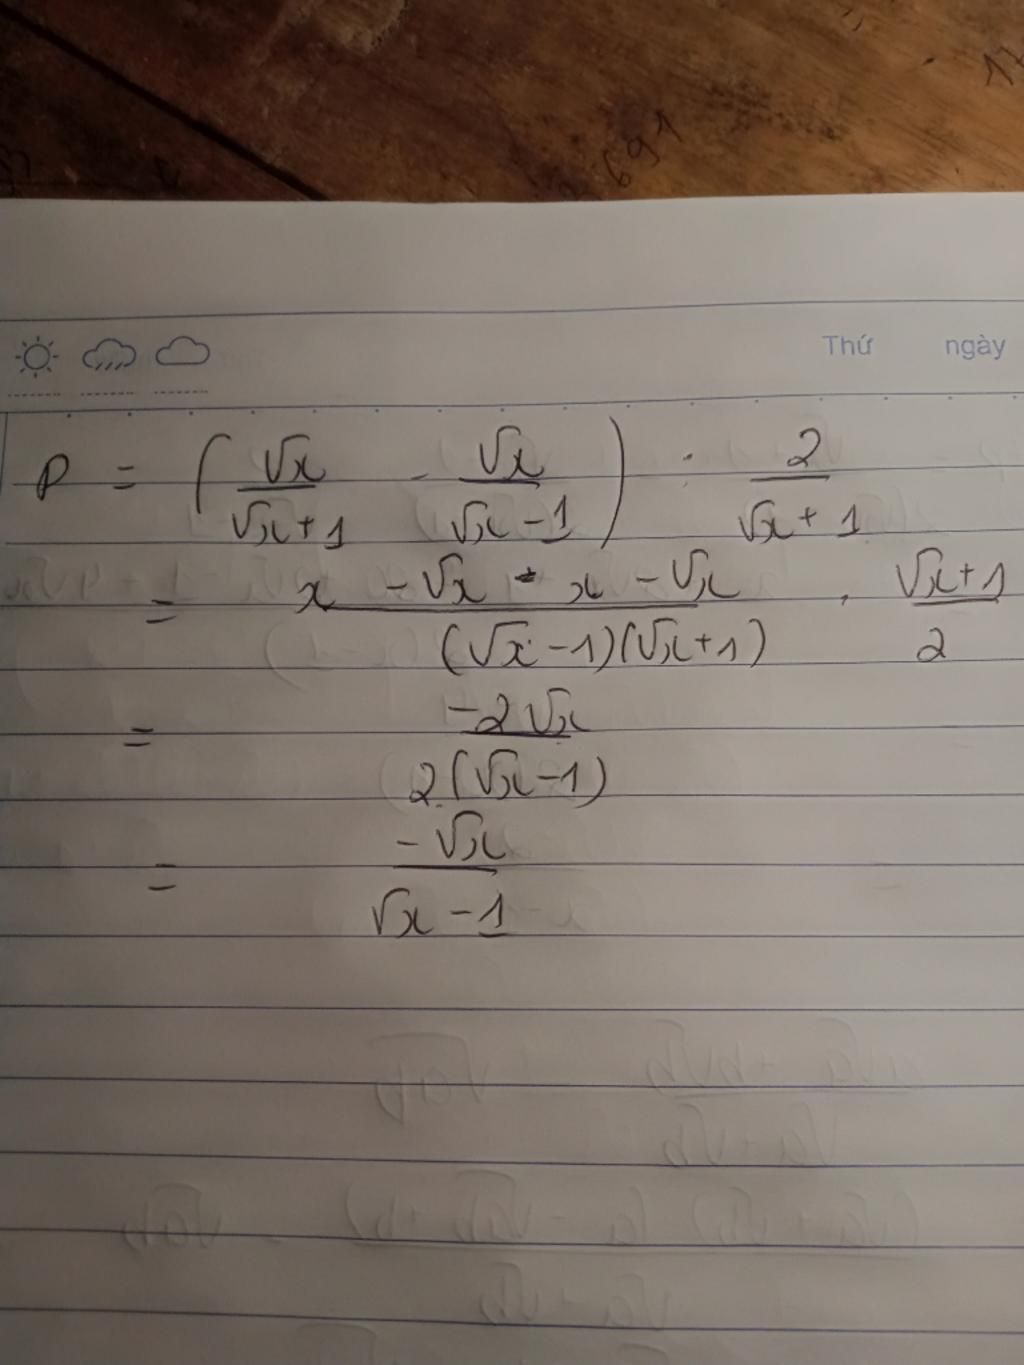 691
Thứ ngày
P = ( √x / √x + 1 - √x / √x - 1 ) : 2 / √x + 1
= x - √x - x - √x / (√x - 1)(√x + 1) . √x + 1 / 2
= -2√x / 2(√x - 1)
= -√x / √x - 1